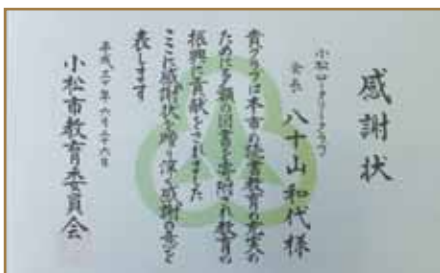 感謝状
小松ロータリークラブ
会長 八十山和代様
貴クラブは本市の読書教育の充実の
ために多額の図書を寄附され教育の
振興に貢献をされました
ここに感謝状を贈り深く感謝の意を
表します
平成三十年六月二十六日
小松市教育委員会